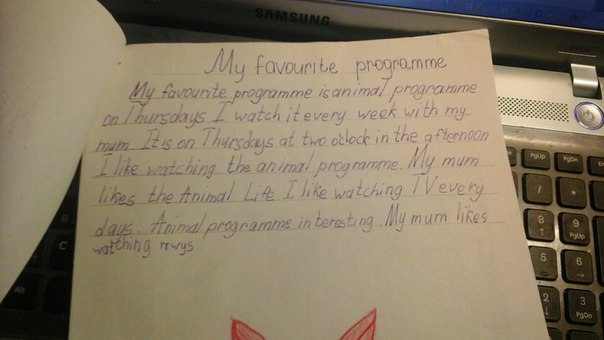 SAMSUNG
My favourite programme
My favourite programme is animal programme
on Thursdays I watch it every week with my
mum. It is on Thursdays at two o'clock in the afternoon
I like watching the animal programme. My mum
likes the Animal Life. I like watching TV every
days. Animal programme interesting. My mum likes
watching
PgUp
PgDn
Pause
/
*
8
9
PgUp
5
6
2
3
PgDn
C
Alt